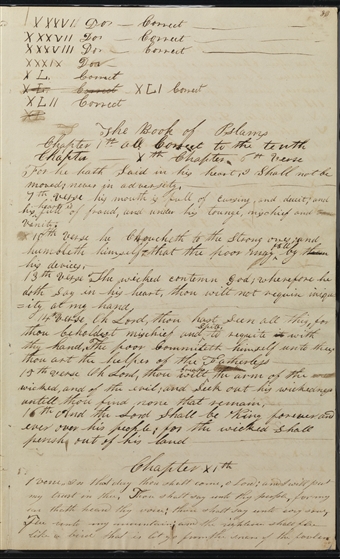 XXXVII Do — Correct
XXXVIII Do — Correct
XXXIX Do
XL Correct
XL Correct XLI Correct
XLII Correct
The Book of Pslams
Chapter 1st all Correct to the tenth
Chapter Xth Chapter 6th verse
For he hath Said in his heart, I Shall not be
moved; never in adversity.
7th verse his mouth is full of cursing, and deceit; and
his heart is full of fraud, and under his tounge, mischief and
Vanity;
10th verse he Croucheth to the Strong ones, and
humbleth himself, that the poor may fall by
his devices.
13th verse The wicked contemn God; wherefore he
doth Say in his heart, thou wilt not require iniqu
ity at my hand,
14 verse Oh Lord, thou hast Seen all this, for
thou beholdest mischief and Spite, to requite with
thy hand, The poor Committeth himself unto thee;
thou art the helper of the Fatherless
15th verse Oh Lord, thou wilt break the arm of the
wicked, and of the evil; and Seek out his wickedness
untill thou find none that remain.
16th And the Lord Shall be King forever and
ever over his people; for the wicked Shall
perish out of his land
Chapter XIth
1 verse In that day thou shall come, O Lord; and I will put
my trust in thee. Thou shall say unto thy people, for my
ear hath heard thy voice; thou shalt say unto every soul,
Flee unto my mountain; and the righteous shall flee
like a bird that is let go from the snare of the fowler